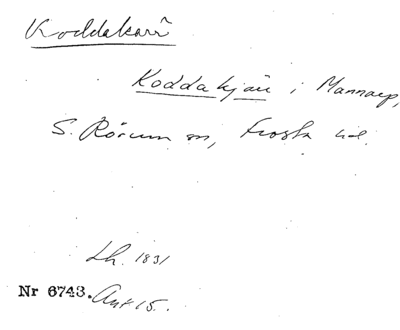 Koddakarr
Koddakjärr i Mannarp,
S. Rörum sn, Frosta hd.
Lh. 1831
Nr 6743. Ant 15.